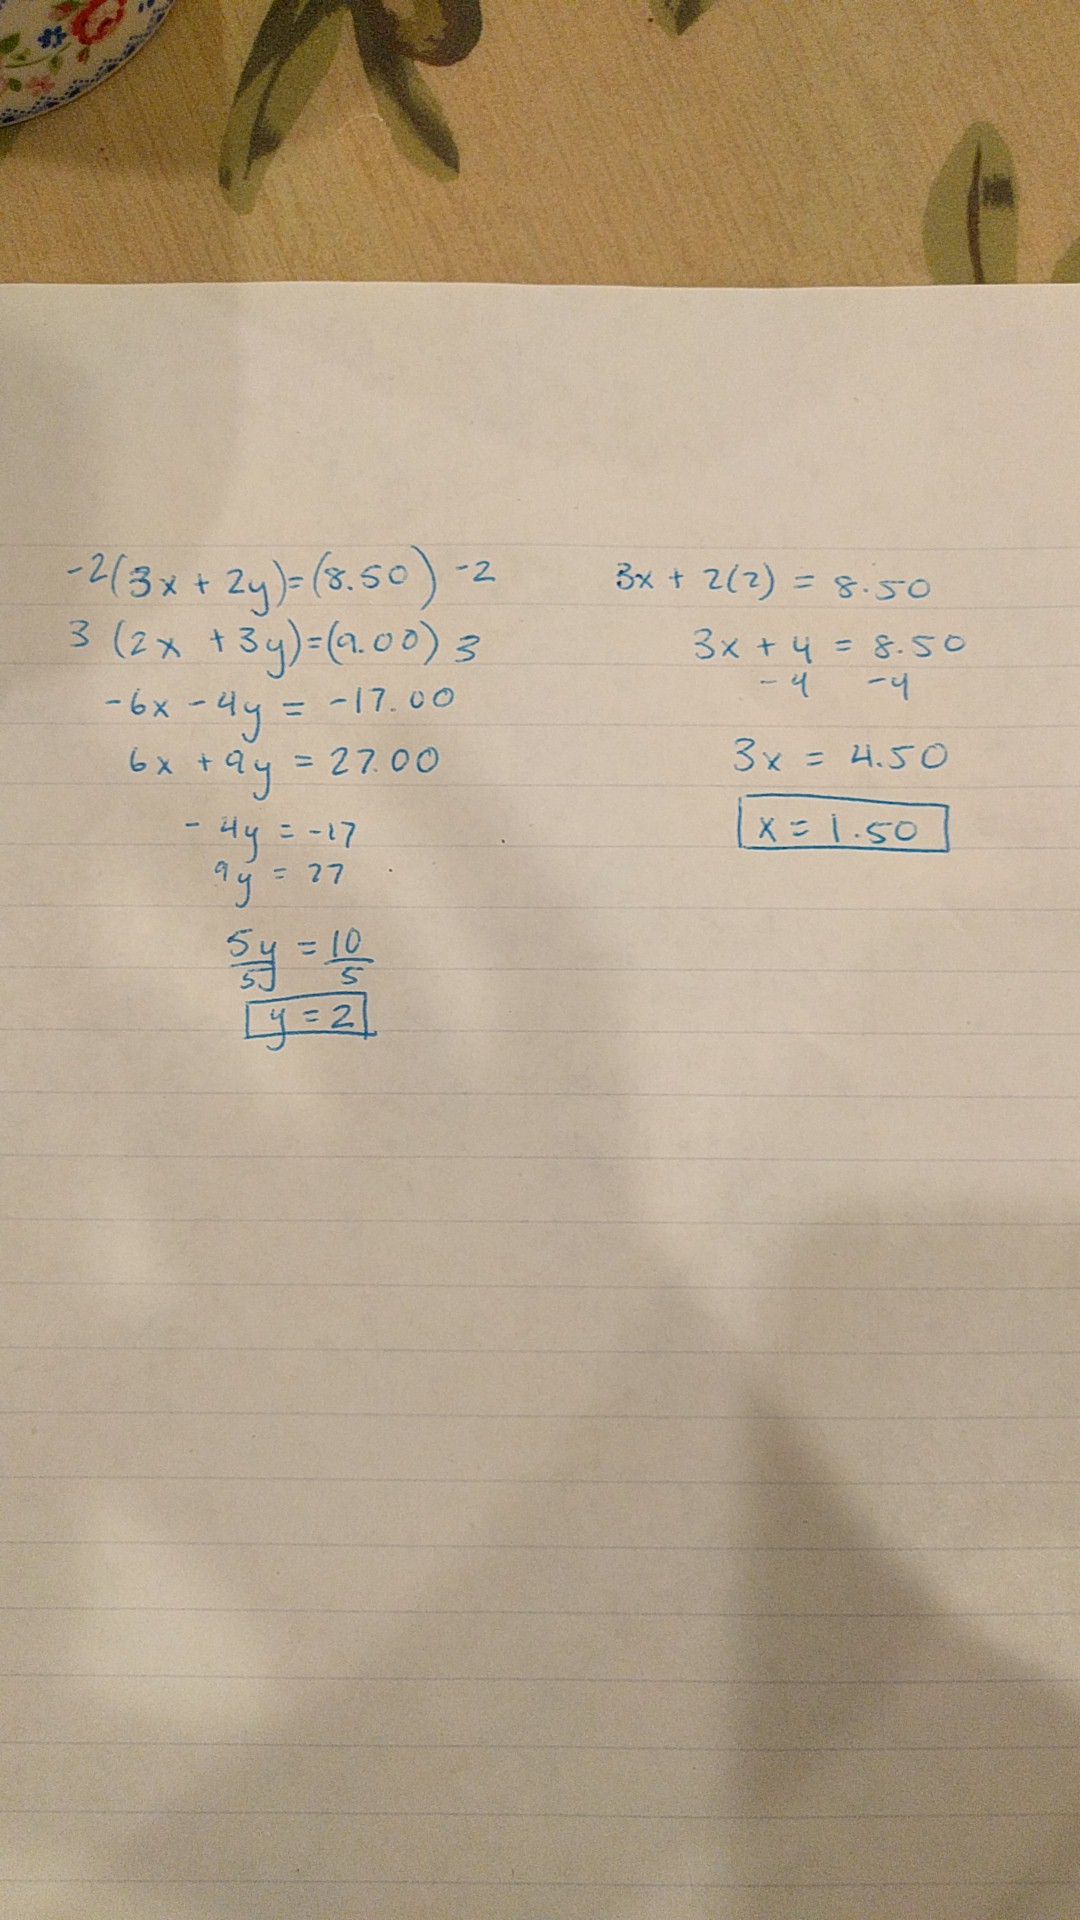 -2(3x + 2y)=(8.50) -2
3 (2x + 3y)=(9.00) 3
-6x - 4y = -17.00
6x + 9y = 27.00
- 4y = -17
9y = 27
5y = 10
5 5
y = 2
3x + 2(2) = 8.50
3x + 4 = 8.50
-4 -4
3x = 4.50
x = 1.50